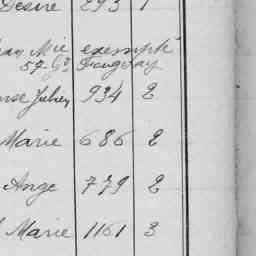 Desire 293 1
Mie exempté
57. Gd Fougeray
Julien 934 2
Marie 686 2
Ange 779 2
Marie 1161 3